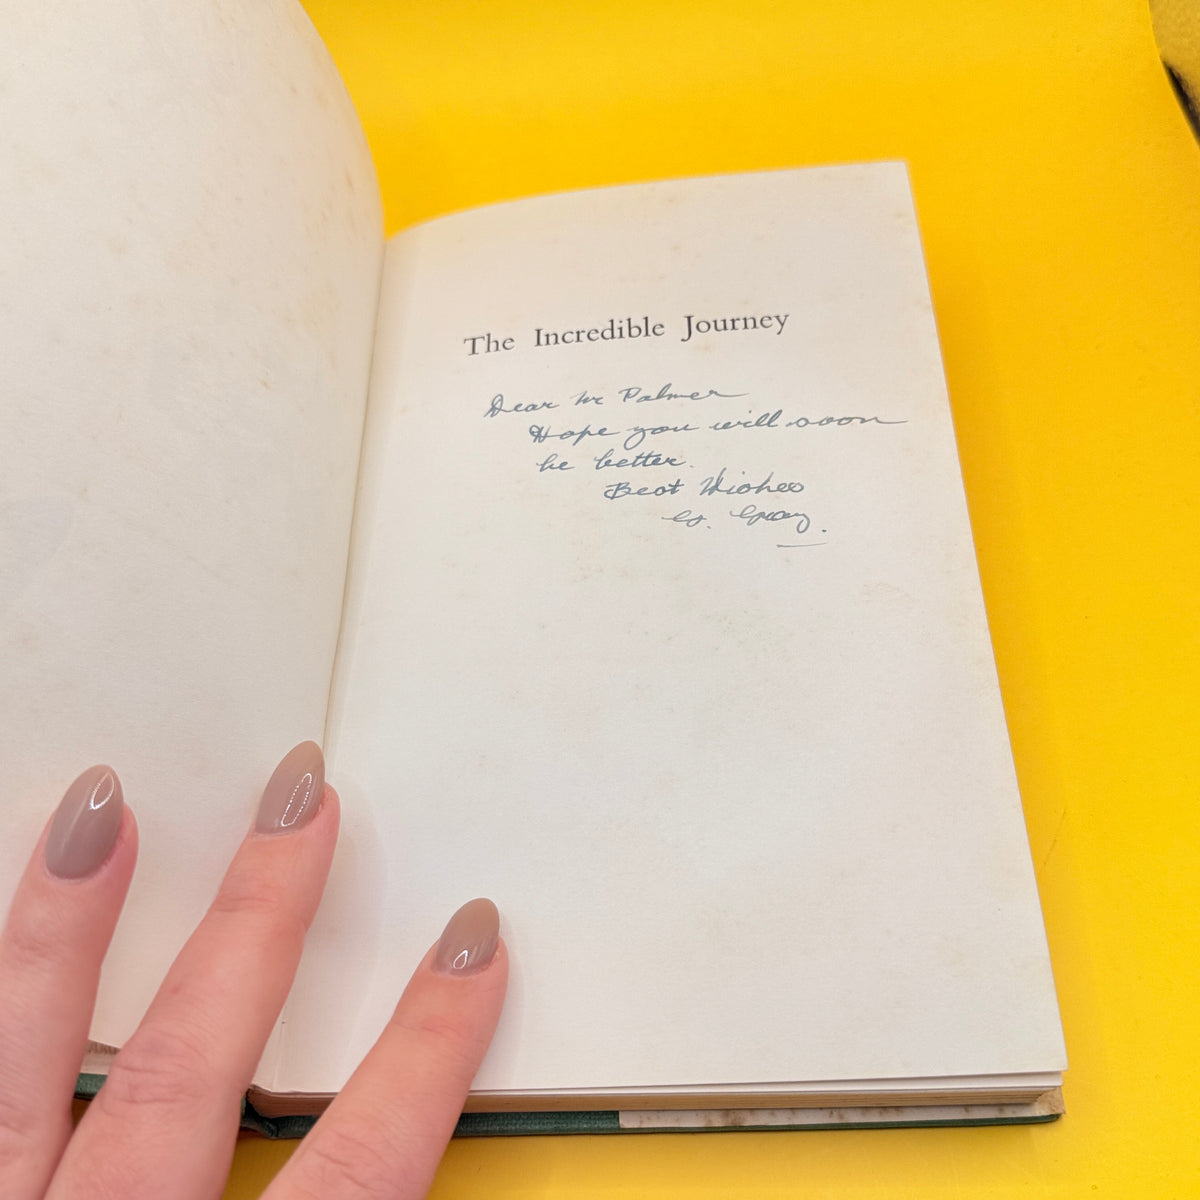 The Incredible Journey
Dear Mr Palmer
Hope you will soon
be better.
Best Wishes
G. Gray.